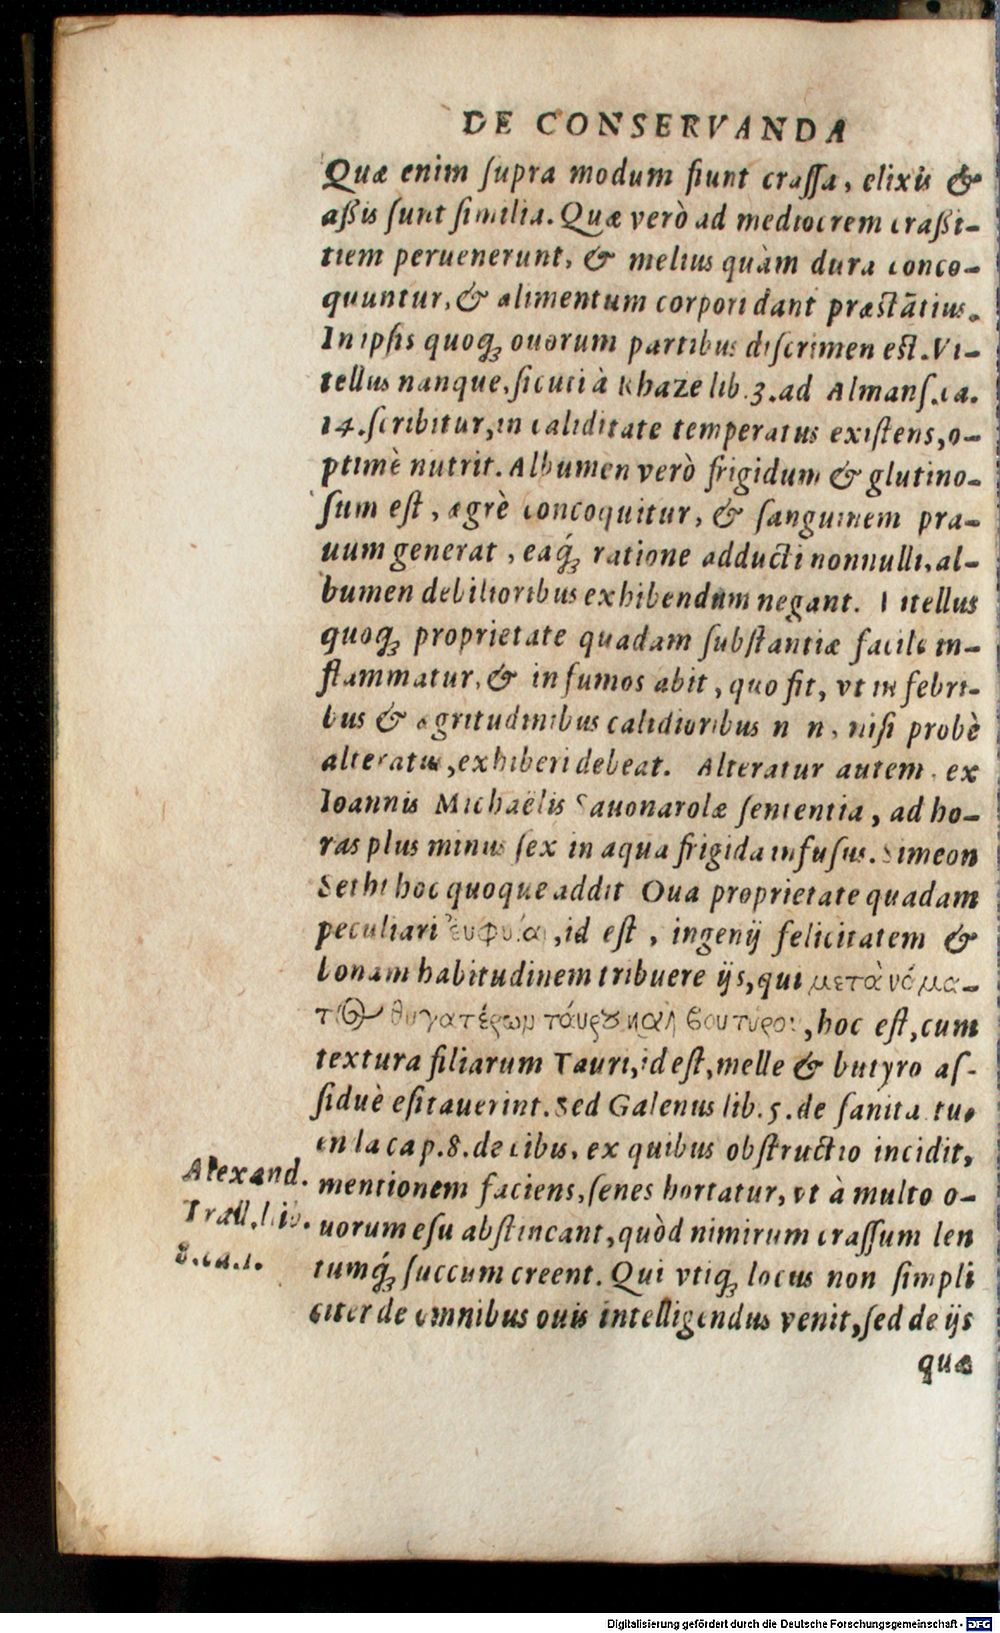 DE CONSERVANDA
Quæ enim ſupra modum fiunt craſſa, elixis &
aßis ſunt ſimilia. Quæ verò ad mediocrem craßi-
tiem peruenerunt, & melius quàm dura conco-
quuntur, & alimentum corpori dant præſtātius.
In ipſis quoqꝫ ouorum partibus diſcrimen eſt. Vi-
tellus nanque, ſicuti à Rhaze lib. 3. ad Almanſ. ca.
14. ſcribitur, in caliditate temperatus exiſtens, o-
ptimè nutrit. Albumen verò frigidum & glutino-
ſum eſt, ægrè concoquitur, & ſanguinem pra-
uum generat, eaq́ꝫ ratione adducti nonnulli, al-
bumen debilioribus exhibendum negant. Vitellus
quoqꝫ proprietate quadam ſubſtantiæ facile in-
flammatur, & in fumos abit, quo fit, vt in febri-
bus & ægritudinibus calidioribus nisi probè
alteratus, exhiberi debeat. Alteratur autem, ex
Ioannis Michaëlis Sauonarolæ ſententia, ad ho-
ras plus minus ſex in aqua frigida infuſus. Simeon
Sethi hoc quoque addit Oua proprietate quadam
peculiari ἐυφυΐαν, id eſt, ingenij felicitatem &
bonam habitudinem tribuere ijs, qui μετὰ νάμα-
τος θυγατέρωμ τάυρȣ καὶ βουτύρου, hoc eſt, cum
textura filiarum Tauri, id eſt, melle & butyro aſ-
ſiduè eſitauerint. Sed Galenus lib. 5. de ſanita. tu-
enla cap. 8. de cibis, ex quibus obſtructio incidit,
mentionem faciens, ſenes hortatur, vt à multo o-
uorum eſu abſtineant, quòd nimirum craſſum len
tumq́ꝫ ſuccum creent. Qui vtiqꝫ locus non ſimpli
citer de omnibus ouis intelligendus venit, ſed de ijs
quæ
Alexand.
Trall. lib.
8. ca. 1.
Digitalisierung gefördert durch die Deutsche Forschungsgemeinschaft - DFG